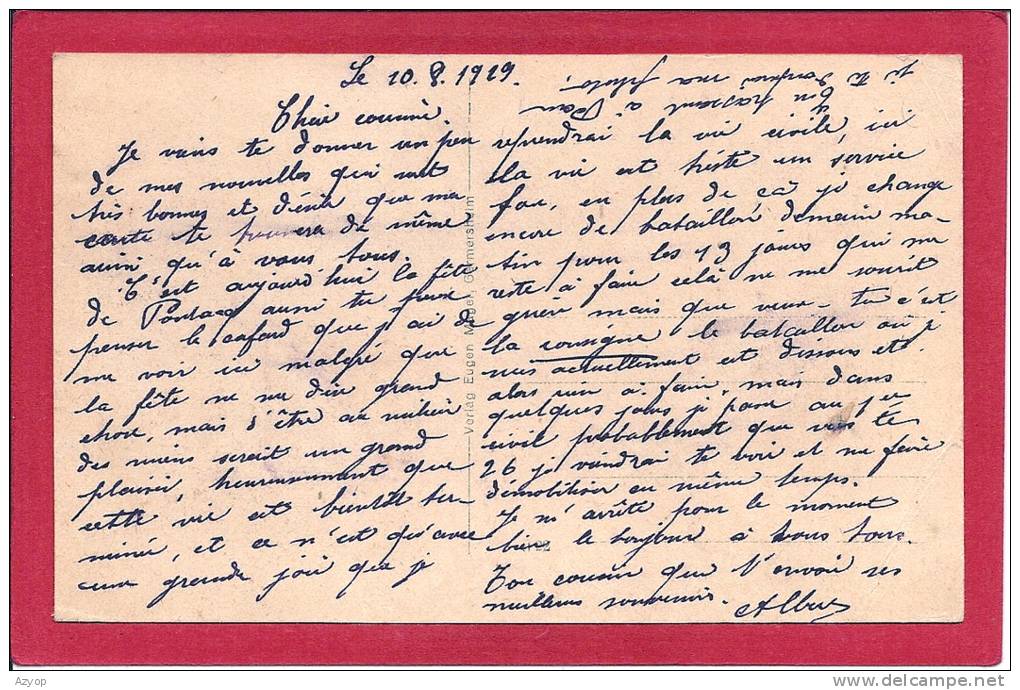 Le 10.8.1919.
Cher cousine.
Je viens te donner un peu
de mes nouvelles qui sont
très bonnes et désire que ma
carte te trouvera de même
ainsi qu'à vous tous.
C'est aujourd'hui la fête
de Pontacq aussi tu peux
penser le cafard que j'ai de
me voir ici malgré que
la fête ne me dise grand
chose, mais s'être au milieu
des miens serait un grand
plaisir, heureusement que
cette vie est bientôt ter-
minée, et ce n'est qu'avec
une grande joie que je
reprendrai la vie civile, ici
la vie est triste un service
fou, en plus de çà je change
encore de bataillon demain ma-
tin pour les 13 jours qui me
reste à faire celà ne me sourit
guère mais que veux-tu c'est
la consigne le bataillon ou je
suis actuellement est dissous et
alors rien à faire, mais dans
quelques jours je passe au 1er
civil probablement que vers le
26 je viendrai te voir et me faire
démobiliser en même temps.
Je m'arrête pour le moment
bien le bonjour à vous tous.
Ton cousin que t'envoie ses
meilleurs souvenirs. Albert
En passant à Pau
je te donnerai ma photo.
Verlag Eugen Mager, Germersheim
Azyop
www.delcampe.net